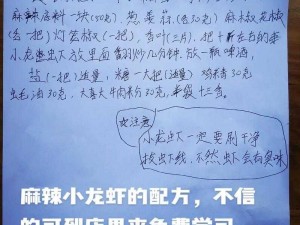 麻辣底料一块(50克), 葱姜蒜(各50克) 麻椒花椒
(各一把) 灯笼椒(一把), 香叶(三片), 把十斤左右的
小龙虾放里面翻炒几分钟, 放一瓶啤酒,
盐(一把)适量, 糖一大把(适量) 鸡精30克
蚝油30克, 大喜大牛肉粉30克, 半袋十三香。
注意
小龙虾一定要刷干净
拔虾线, 不然虾会有臭味
麻辣小龙虾的配方，不信
的可到店里来免费学习